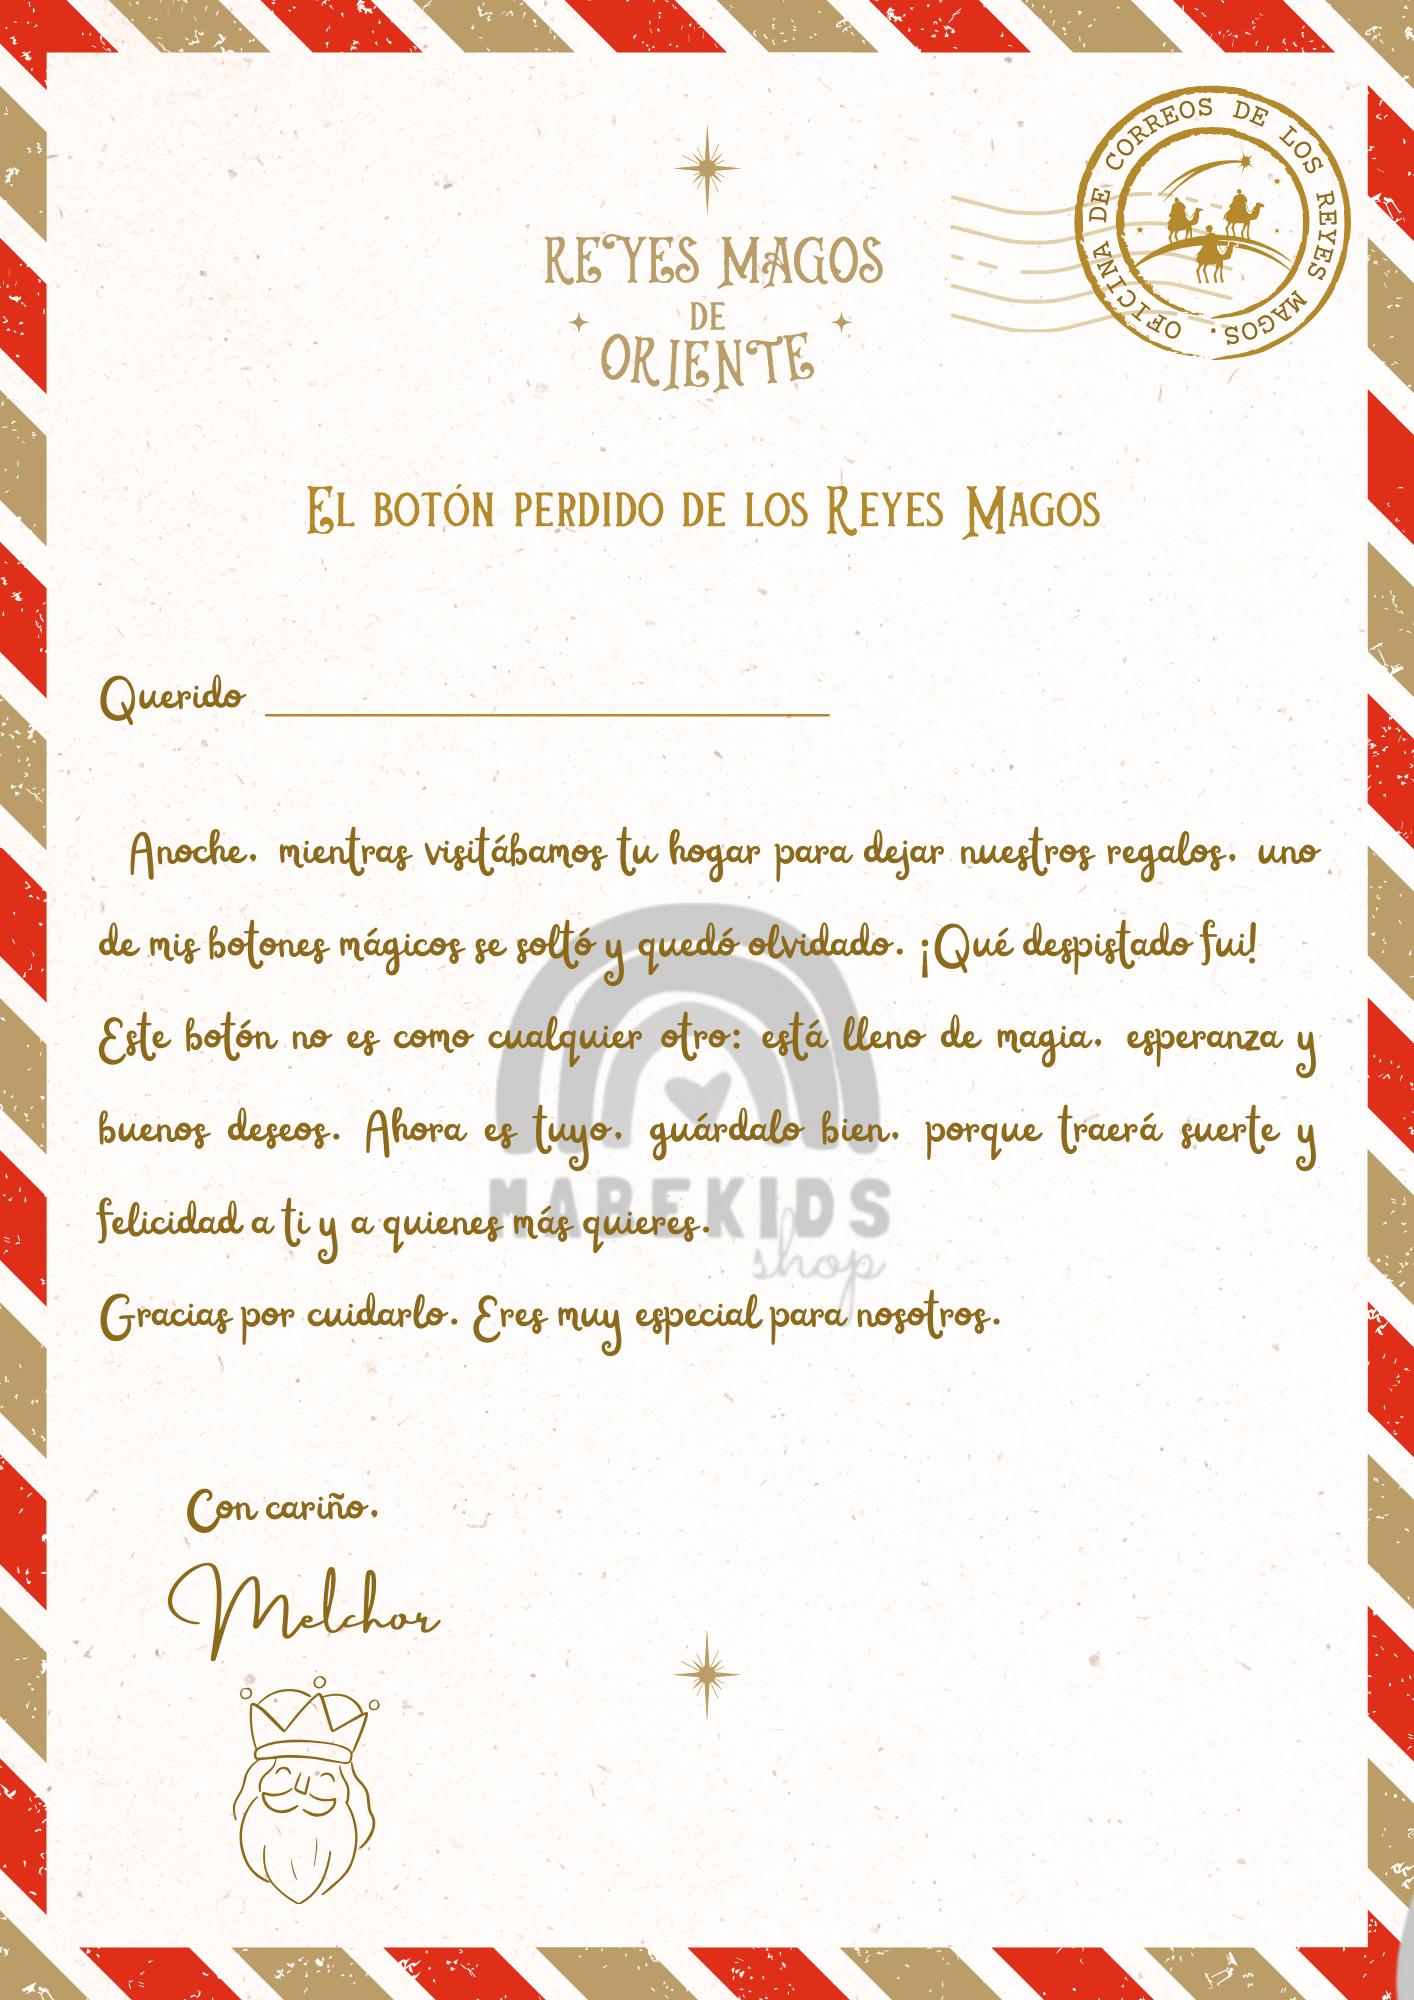 OFICINA DE CORREOS DE LOS REYES MAGOS ·
REYES MAGOS
DE
ORIENTE
El botón perdido de los Reyes Magos
Querido
Anoche, mientras visitábamos tu hogar para dejar nuestros regalos, uno
de mis botones mágicos se soltó y quedó olvidado. ¡Qué despistado fui!
Este botón no es como cualquier otro: está lleno de magia, esperanza y
buenos deseos. Ahora es tuyo, guárdalo bien, porque traerá suerte y
felicidad a ti y a quienes más quieres.
MABEKIDS
shop
Gracias por cuidarlo. Eres muy especial para nosotros.
Con cariño,
Melchor